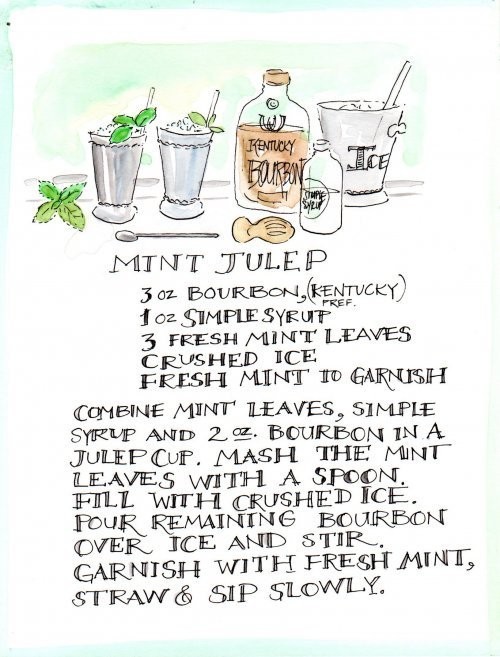 KENTUCKY
BOURBON
SIMPLE
SYRUP
ICE
MINT JULEP
3 OZ BOURBON, (KENTUCKY)
PREF.
1 OZ SIMPLE SYRUP
3 FRESH MINT LEAVES
CRUSHED ICE
FRESH MINT TO GARNISH
COMBINE MINT LEAVES, SIMPLE
SYRUP AND 2 OZ. BOURBON IN A
JULEP CUP. MASH THE MINT
LEAVES WITH A SPOON.
FILL WITH CRUSHED ICE.
POUR REMAINING BOURBON
OVER ICE AND STIR.
GARNISH WITH FRESH MINT,
STRAW & SIP SLOWLY.